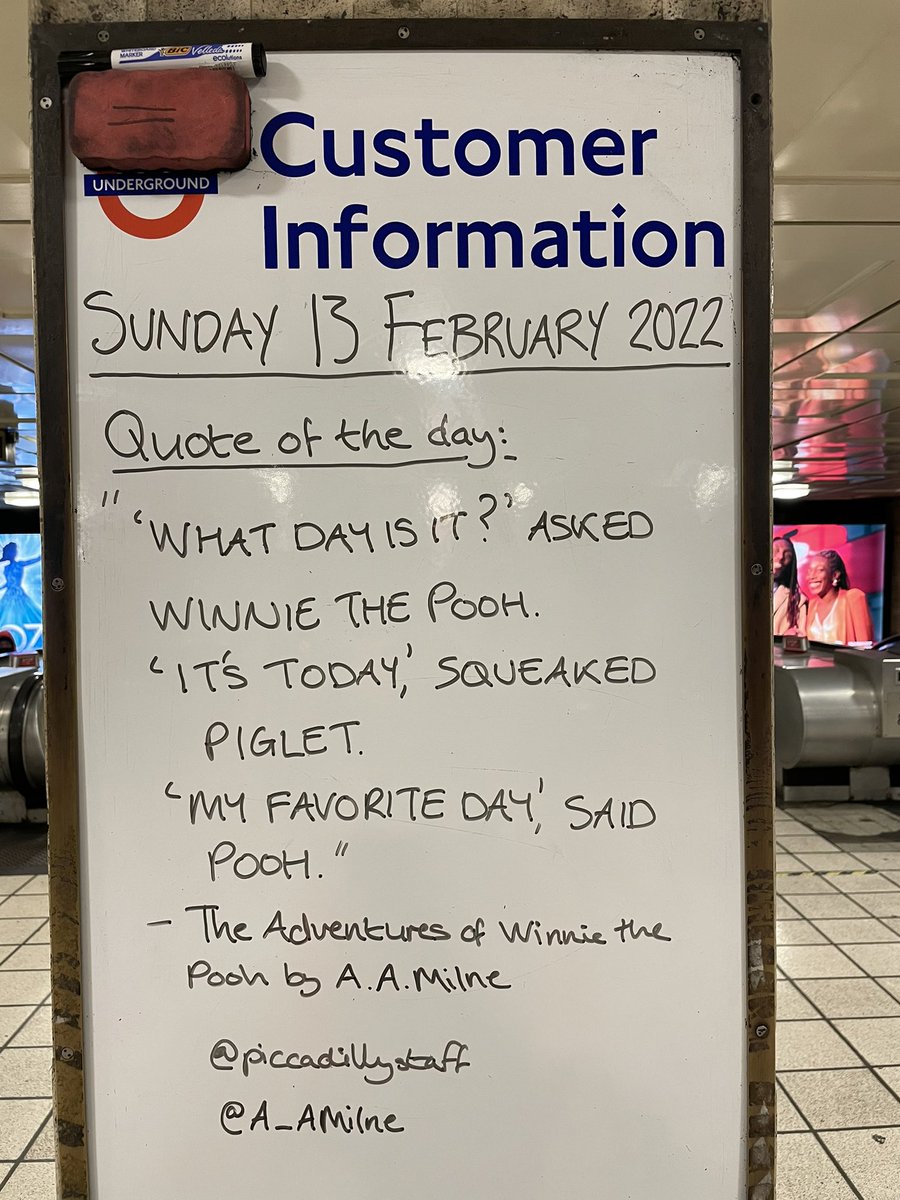 WHITEBOARD MARKER BIC Velleda ecolutions
UNDERGROUND
Customer
Information
SUNDAY 13 FEBRUARY 2022
Quote of the day:-
" 'WHAT DAY IS IT?' ASKED
WINNIE THE POOH.
'IT'S TODAY,' SQUEAKED
PIGLET.
'MY FAVORITE DAY,' SAID
POOH."
- The Adventures of Winnie the
Pooh by A.A.Milne
@piccadillystaff
@A_AMilne